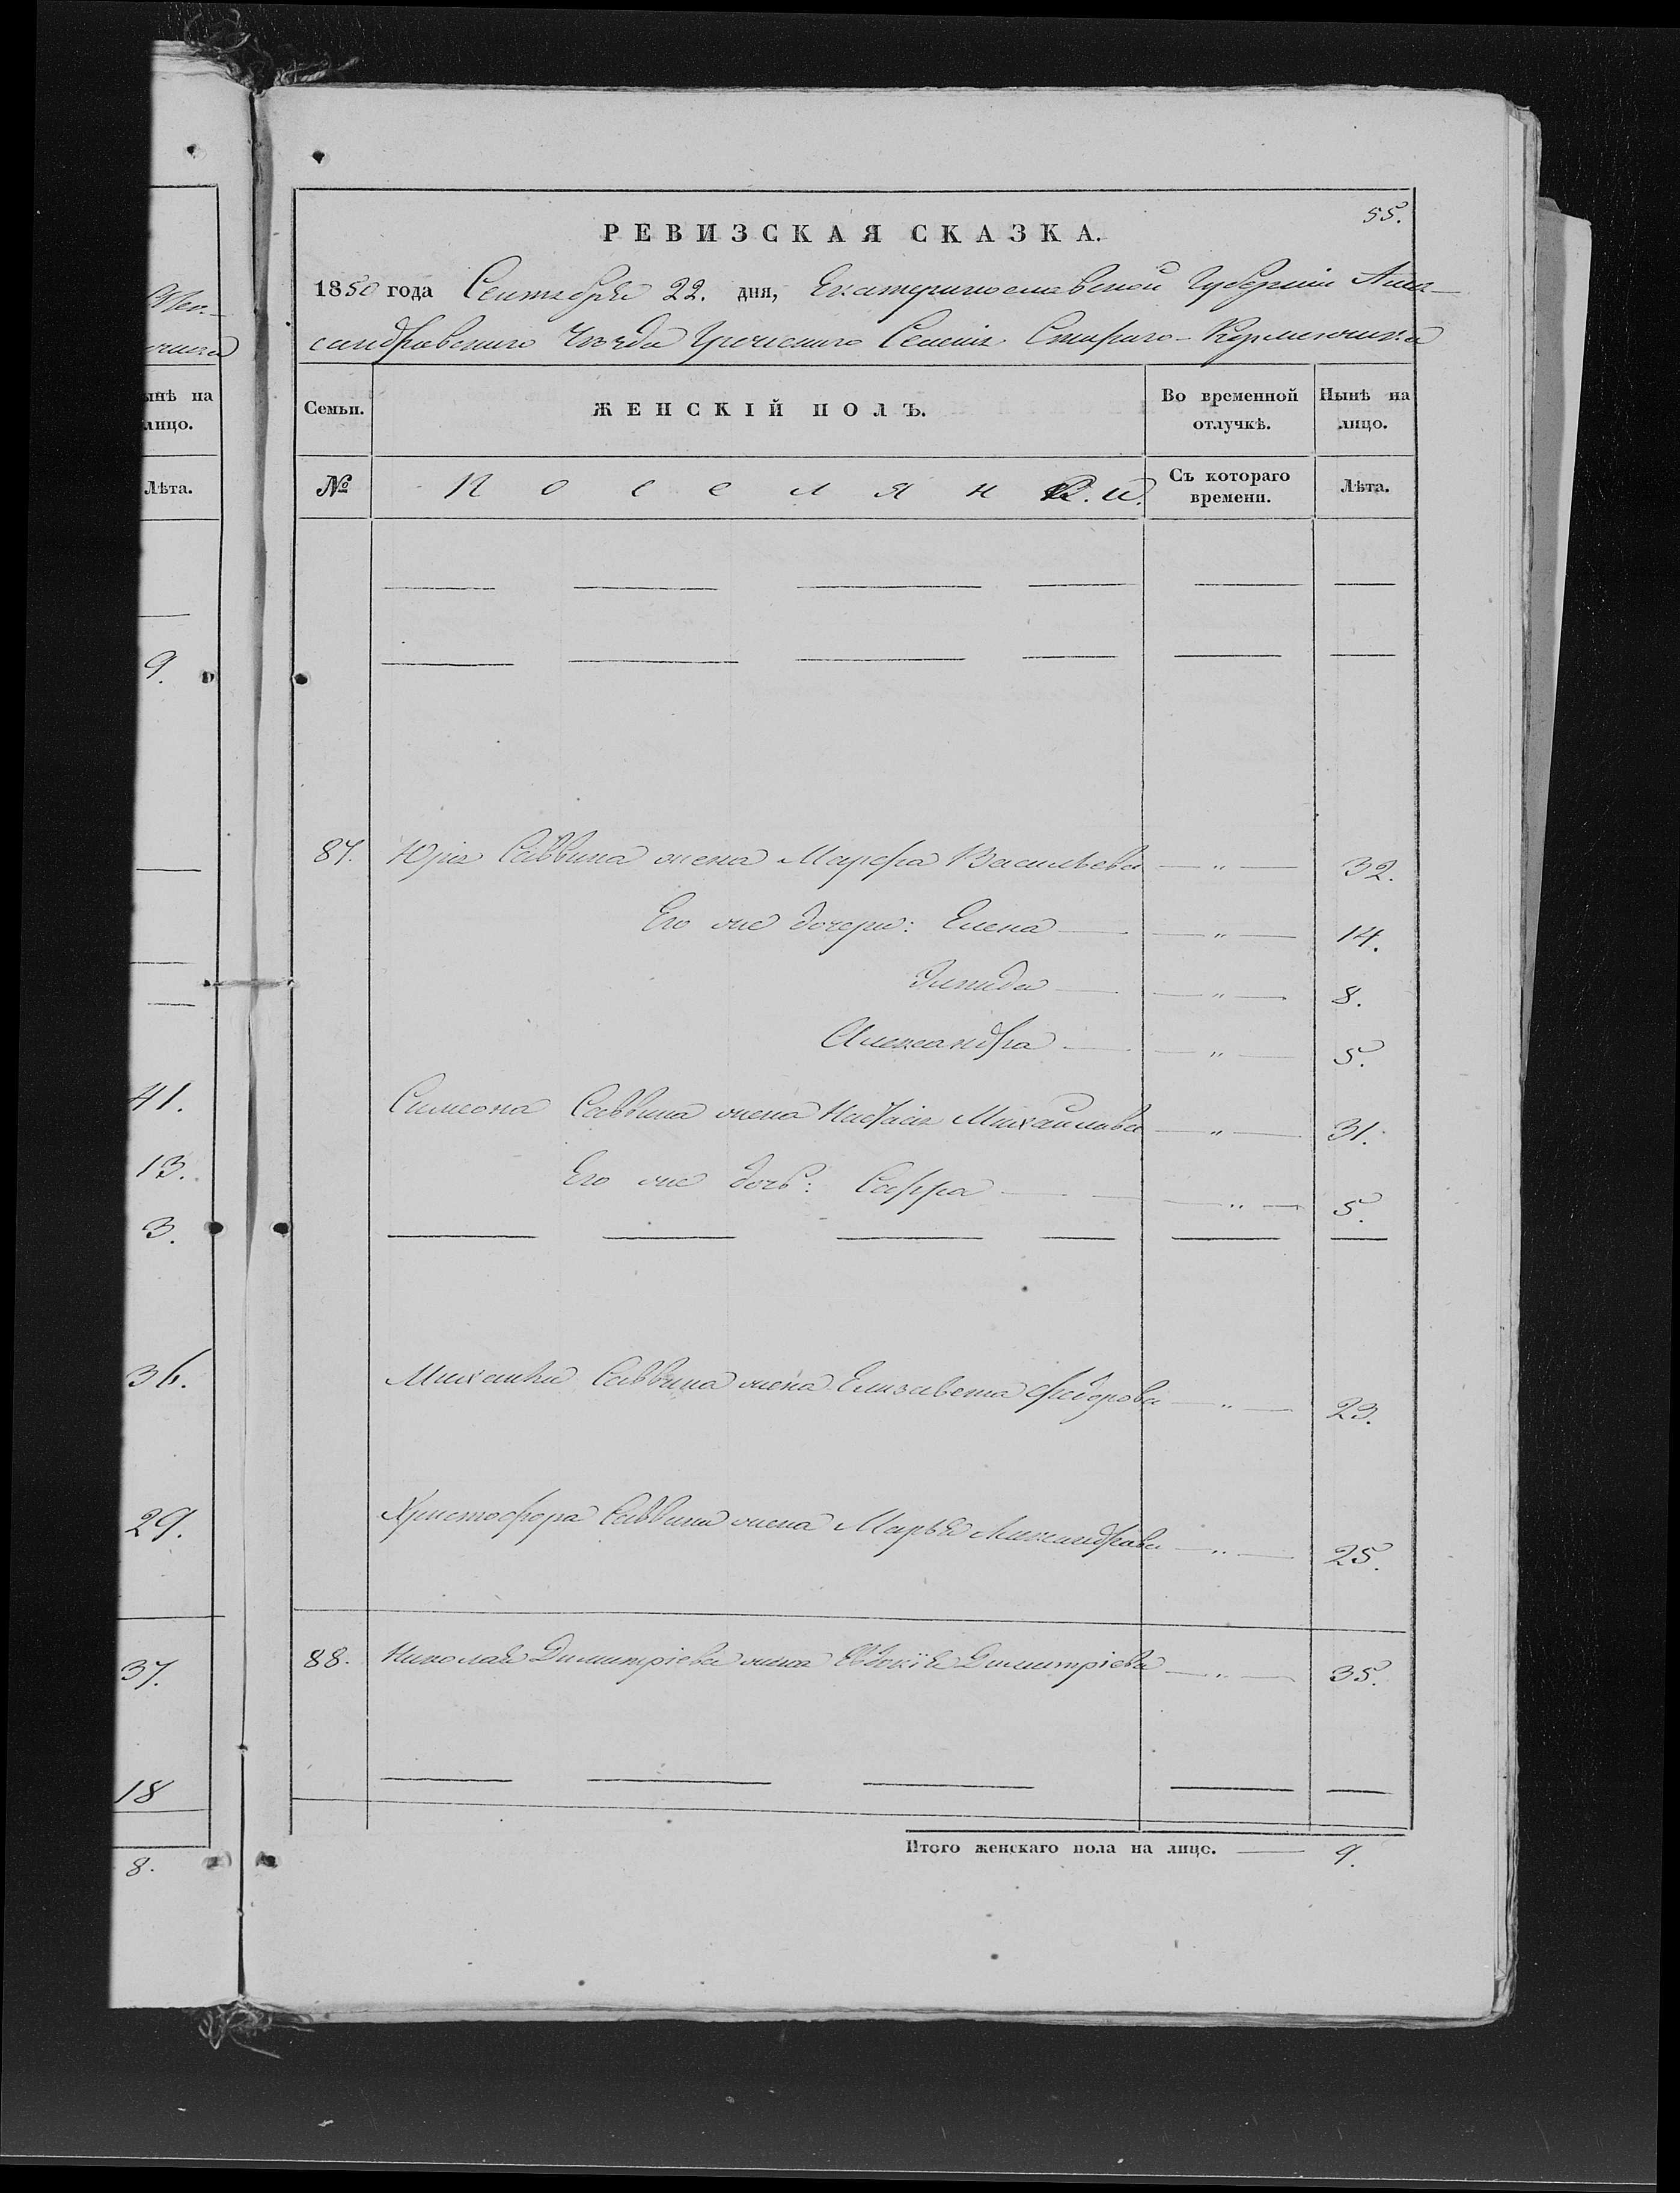 55.
РЕВИЗСКАЯ СКАЗКА.
1850 года Сентября 22. дня, Екатеринославской Губерніи Алек-
сандровскаго Уѣзда Греческаго Селенія Стараго-Керменчика
Семьи. ЖЕНСКІЙ ПОЛЪ. Во временной отлучкѣ. Нынѣ на лицо.
№ Поселянки. Съ котораго времени. Лѣта.
87. Юрія Саввина жена Марфа Васильева — „ — 32.
Его же дочери: Елена — — „ — 14.
Зинида — — „ — 8.
Александра — — „ — 5.
Симеона Саввина жена Настасія Михайлова — „ — 31.
Его же дочь: Сарра — — „ — 5.
Михаила Саввина жена Елизавета Федорова — „ — 23.
Христофора Саввина жена Марья Александрова — „ — 25.
88. Николая Димитріева жена Димитріева — „ — 35.
Итого женскаго пола на лице. — 9.
ынѣ на
лицо.
Лѣта.
9.
41.
13.
3.
36.
29.
37.
18
8.